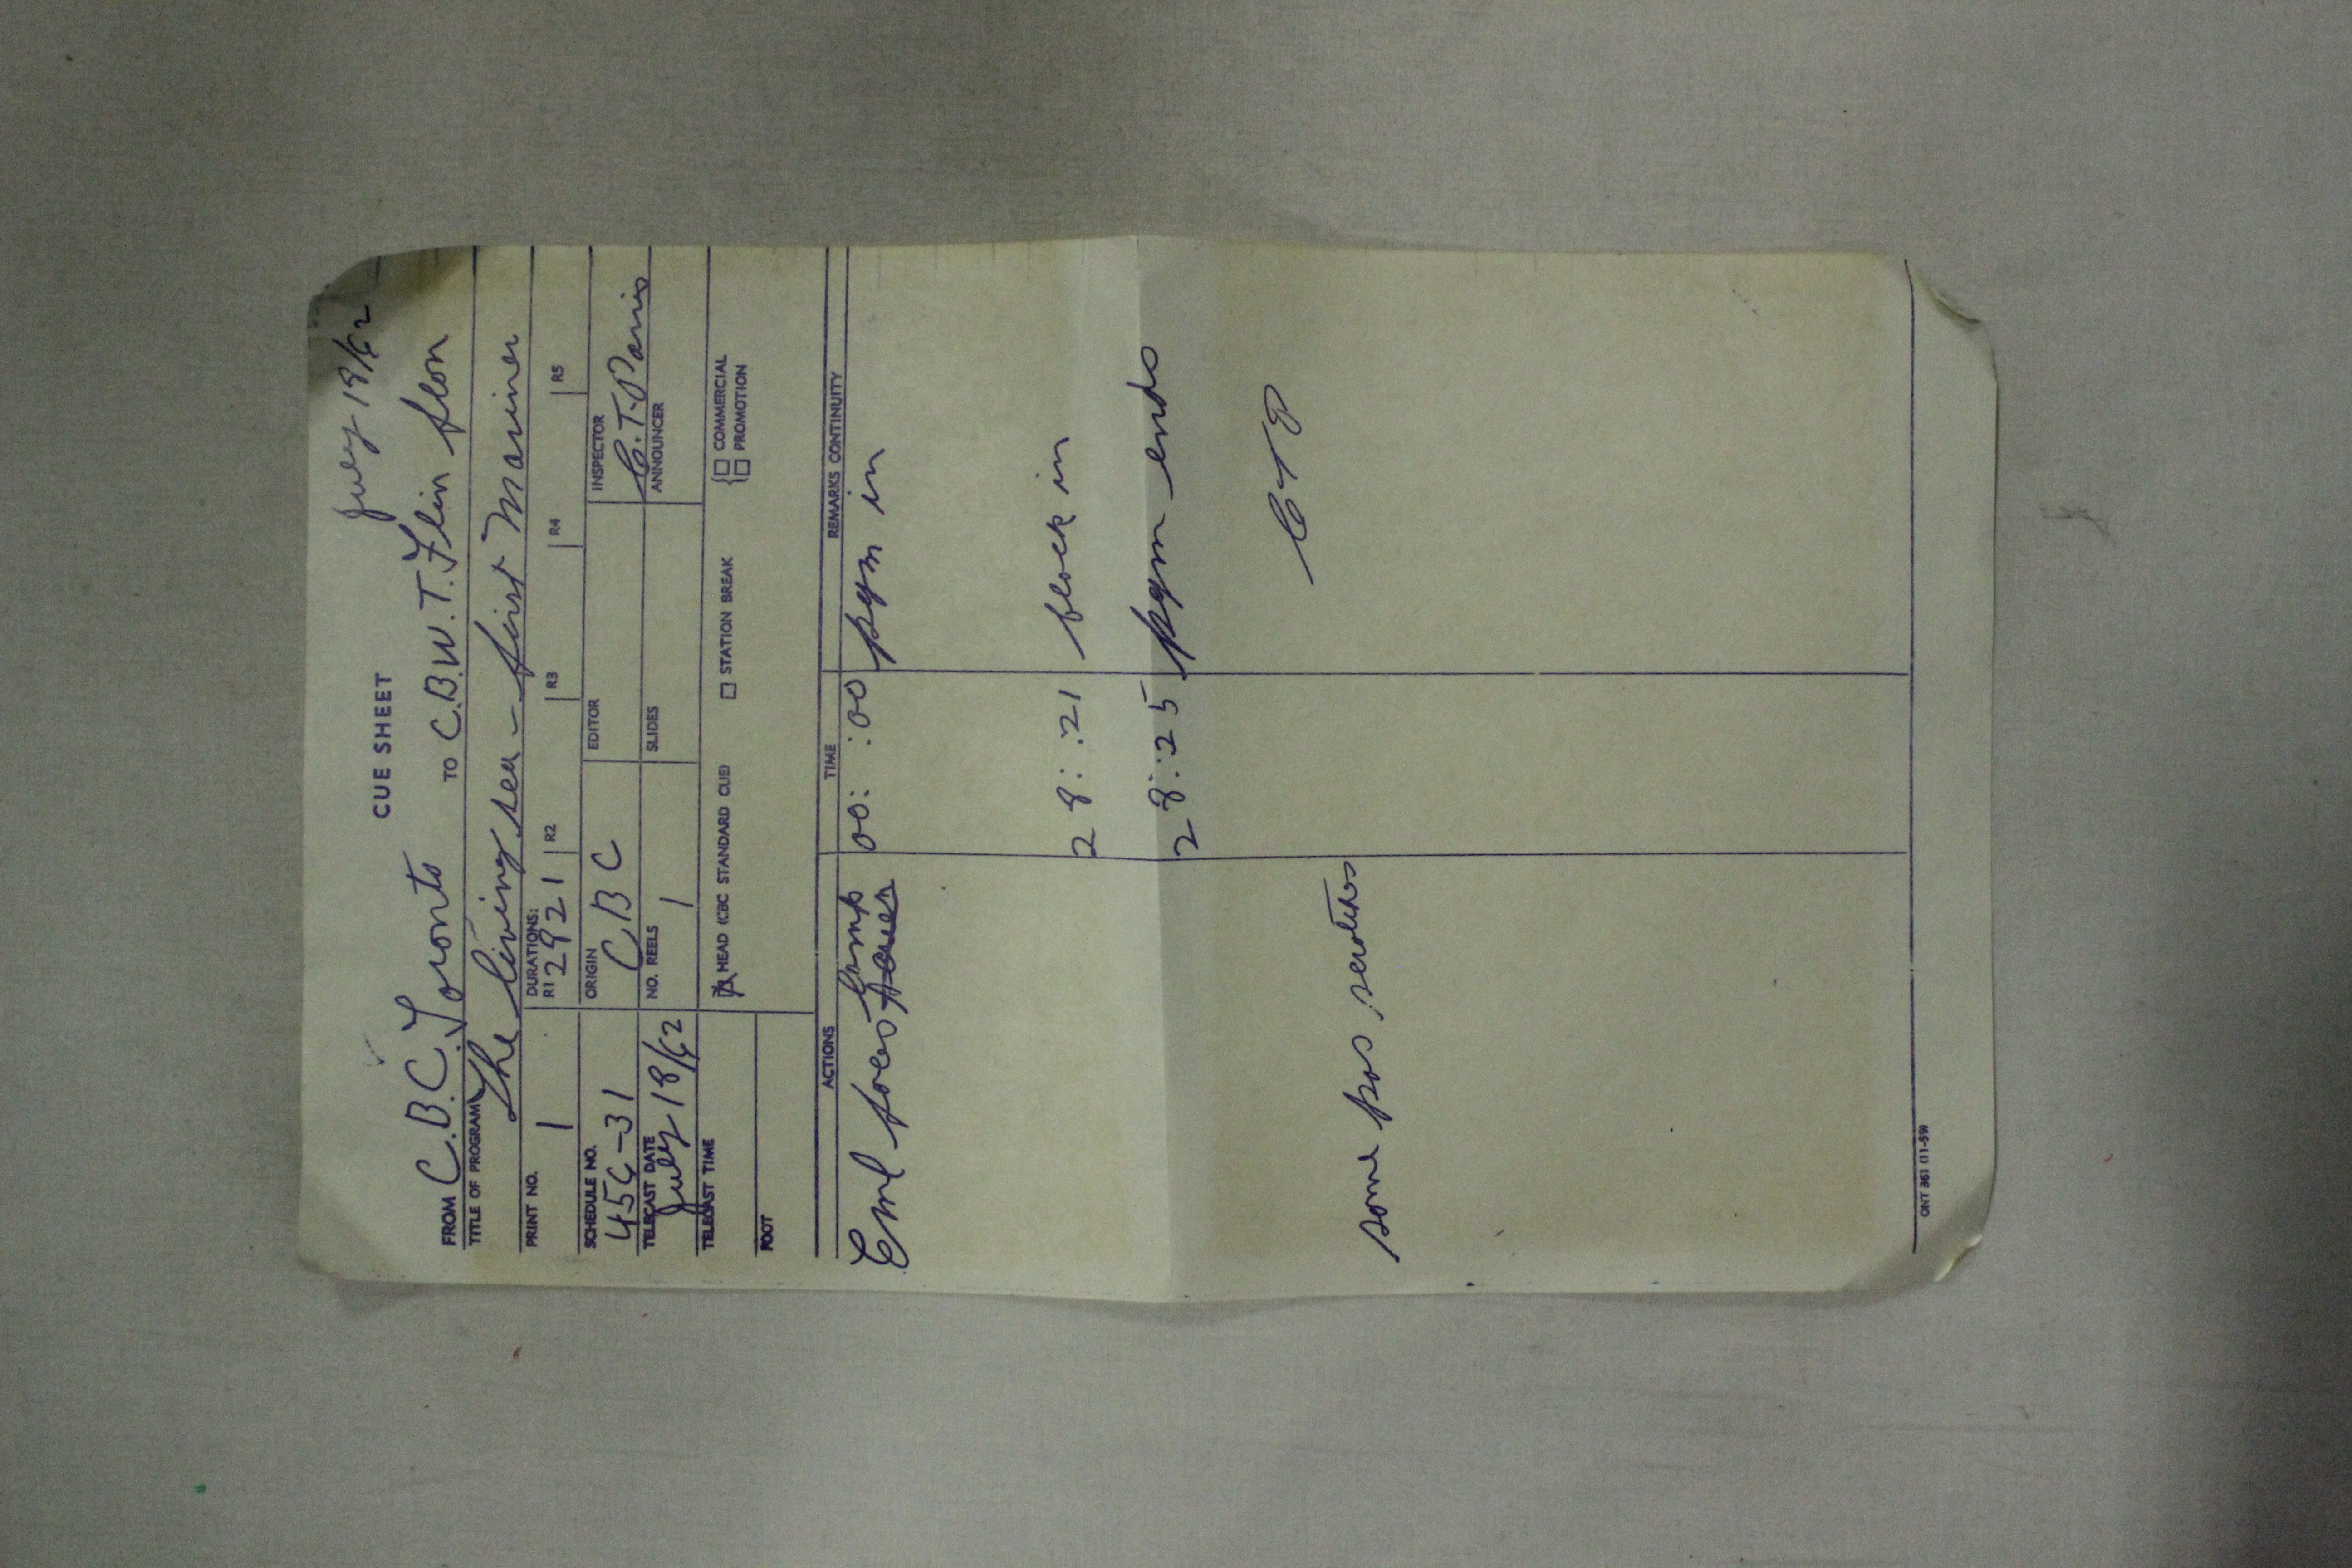 July 18/62
CUE SHEET
FROM C.B.C. Toronto TO C.B.W.T. Flin flon
TITLE OF PROGRAM The living sea - first Mariner
PRINT NO. 1 DURATIONS: R1 2821 R2 R3 R4 R5
SCHEDULE NO. 456-31 ORIGIN CBC EDITOR INSPECTOR C.T. Parris
TELECAST DATE July 18/62 NO. REELS 1 SLIDES ANNOUNCER
TELECAST TIME HEAD (CBC STANDARD CUE) STATION BREAK COMMERCIAL
PROMOTION
FOOT
ACTIONS TIME REMARKS CONTINUITY
Eml 00: :00 pgm in
28: :21 block in
28: :25 pgm ends
CTP
some pos scratches
ONT 361 (11-59)